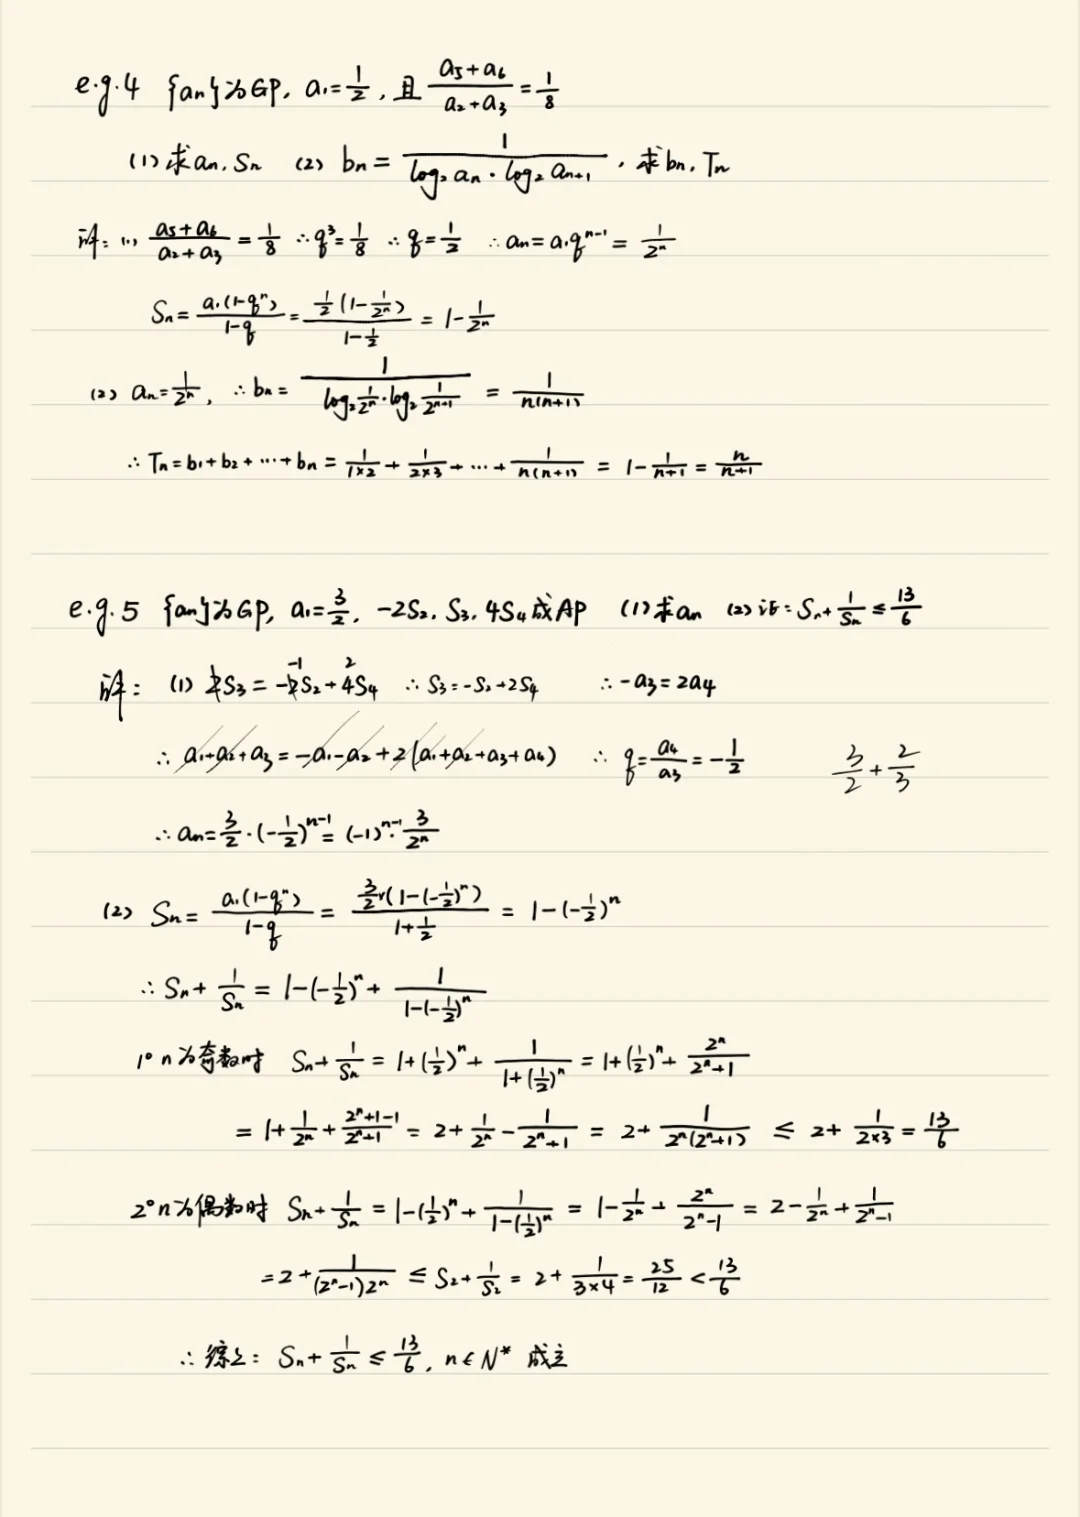 e.g.4 {an}为GP, a₁=1/2, 且 (a₅+a₆)/(a₂+a₃)=1/8
(1)求an, Sn (2) bn=1/(log₂an·log₂an+1), 求bn, Tn
解: (1) (a₅+a₆)/(a₂+a₃)=1/8 ∴q³=1/8 ∴q=1/2 ∴an=a₁qⁿ⁻¹=1/2ⁿ
Sn=a₁(1-qⁿ)/(1-q)=1/2(1-1/2ⁿ)/(1-1/2)=1-1/2ⁿ
(2) an=1/2ⁿ, ∴bn=1/(log₂1/2ⁿ·log₂1/2ⁿ⁺¹)=1/(n(n+1))
∴Tn=b₁+b₂+⋯+bn=1/(1×2)+1/(2×3)+⋯+1/(n(n+1))=1-1/(n+1)=n/(n+1)
e.g.5 {an}为GP, a₁=3/2, -2S₂, S₃, 4S₄成AP (1)求an (2)证: Sn+1/Sn≤13/6
解: (1) 2S₃=-2S₂+4S₄ -1 2 ∴S₃=-S₂+2S₄ ∴-a₃=2a₄
∴a₁+a₂+a₃=-a₁-a₂+2(a₁+a₂+a₃+a₄) ∴q=a₄/a₃=-1/2 3/2+2/3
∴an=3/2·(-1/2)ⁿ⁻¹=(-1)ⁿ⁻¹·3/2ⁿ
(2) Sn=a₁(1-qⁿ)/(1-q)=3/2(1-(-1/2)ⁿ)/(1+1/2)=1-(-1/2)ⁿ
∴Sn+1/Sn=1-(-1/2)ⁿ+1/(1-(-1/2)ⁿ)
1°n为奇数时 Sn+1/Sn=1+(1/2)ⁿ+1/(1+(1/2)ⁿ)=1+(1/2)ⁿ+2ⁿ/(2ⁿ+1)
=1+1/2ⁿ+(2ⁿ+1-1)/(2ⁿ+1)=2+1/2ⁿ-1/(2ⁿ+1)=2+1/(2ⁿ(2ⁿ+1))≤2+1/(2×3)=13/6
2°n为偶数时 Sn+1/Sn=1-(1/2)ⁿ+1/(1-(1/2)ⁿ)=1-1/2ⁿ+2ⁿ/(2ⁿ-1)=2-1/2ⁿ+1/(2ⁿ-1)
=2+1/((2ⁿ-1)2ⁿ)≤S₂+1/S₂=2+1/(3×4)=25/12<13/6
∴综上: Sn+1/Sn≤13/6, n∈N* 成立